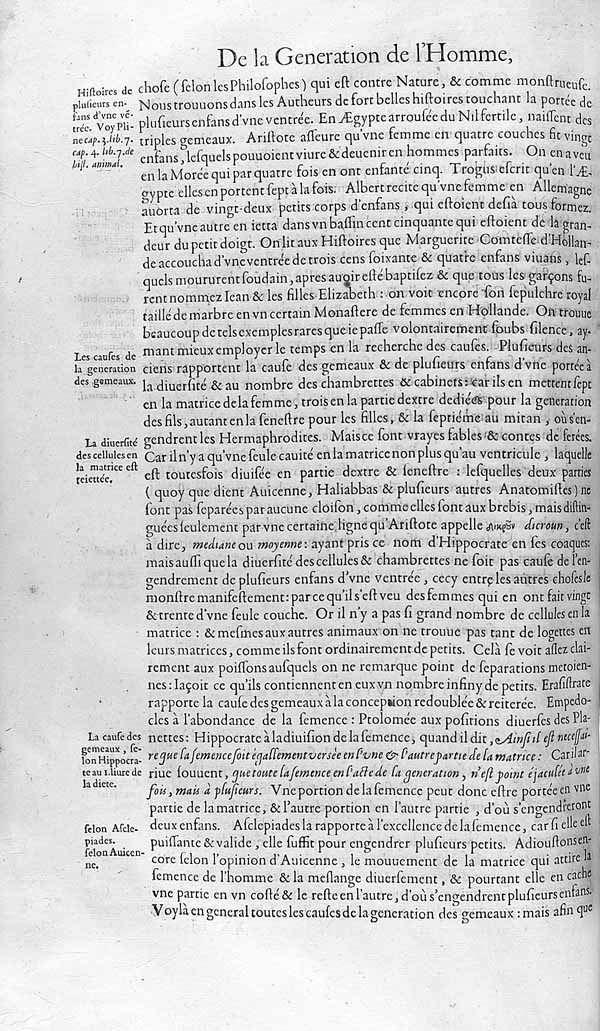 De la Generation de l'Homme,
Histoires de
plusieurs en-
fans d'vne vē-
trée. Voy Pli-
ne cap. 3. lib. 7.
cap. 4. lib. 7. de
hist. animal.
chose (selon les Philosophes) qui est contre Nature, & comme monstrueuse.
Nous trouuons dans les Autheurs de fort belles histoires touchant la portée de
plusieurs enfans d'vne ventrée. En Ægypte arrousée du Nil fertile, naissent des
triples gemeaux. Aristote asseure qu'vne femme en quatre couches fit vingt
enfans, lesquels pouuoient viure & deuenir en hommes parfaits. On en a veu
en la Morée qui par quatre fois en ont enfanté cinq. Trogus escrit qu'en l'Æ-
gypte elles en portent sept à la fois. Albert recite qu'vne femme en Allemagne
auorta de vingt-deux petits corps d'enfans, qui estoient desià tous formez.
Et qu'vne autre en ietta dans vn bassin cent cinquante qui estoient de la gran-
deur du petit doigt. On lit aux Histoires que Marguerite Comtesse d'Hollan-
de accoucha d'vne ventrée de trois cens soixante & quatre enfans viuans, les-
quels moururent soudain, apres auoir esté baptisez & que tous les garçons fu-
rent nommez Iean & les filles Elizabeth: on voit encore son sepulchre royal
taillé de marbre en vn certain Monastere de femmes en Hollande. On trouue
beaucoup de tels exemples rares que ie passe volontairement soubs silence, ay-
Les causes de
la generation
des gemeaux.
mant mieux employer le temps en la recherche des causes. Plusieurs des an-
ciens rapportent la cause des gemeaux & de plusieurs enfans d'vne portée à
la diuersité & au nombre des chambrettes & cabinets: car ils en mettent sept
en la matrice de la femme, trois en la partie dextre dediées pour la generation
des fils, autant en la senestre pour les filles, & la septiéme au mitan, où s'en-
La diuersité
des cellules en
la matrice est
reiettée.
gendrent les Hermaphrodites. Mais ce sont vrayes fables & contes de ferées.
Car il n'y a qu'vne seule cauité en la matrice non plus qu'au ventricule, laquelle
est toutesfois diuisée en partie dextre & senestre: lesquelles deux parties
(quoy que dient Auicenne, Haliabbas & plusieurs autres Anatomistes) ne
sont pas separées par aucune cloison, comme elles sont aux brebis, mais distin-
guées seulement par vne certaine ligne qu'Aristote appelle dicroun, c'est
à dire, mediane ou moyenne: ayant pris ce nom d'Hippocrate en ses coaques:
mais aussi que la diuersité des cellules & chambrettes ne soit pas cause de l'en-
gendrement de plusieurs enfans d'vne ventrée, cecy entre les autres choses le
monstre manifestement: par ce qu'il s'est veu des femmes qui en ont fait vingt
& trente d'vne seule couche. Or il n'y a pas si grand nombre de cellules en la
matrice: & mesmes aux autres animaux on ne trouue pas tant de logettes en
leurs matrices, comme ils font ordinairement de petits. Celà se voit assez clai-
rement aux poissons ausquels on ne remarque point de separations metoien-
nes: Iaçoit ce qu'ils contiennent en eux vn nombre infiny de petits. Erasistrate
rapporte la cause des gemeaux à la conception redoublée & reiterée. Empedo-
cles à l'abondance de la semence: Ptolomée aux positions diuerses des Pla-
La cause des
gemeaux, se-
lon Hippocra-
te au 1. liure de
la diete.
nettes: Hippocrate à la diuision de la semence, quand il dit, Ainsi il est necessai-
re que la semence soit égallement versée en l'vne & l'autre partie de la matrice: Car il ar-
riue souuent, que toute la semence en l'acte de la generation, n'est point éjaculée à vne
fois, mais à plusieurs. Vne portion de la semence peut donc estre portée en vne
partie de la matrice, & l'autre portion en l'autre partie, d'où s'engendreront
selon Ascle-
piades.
selon Auicen-
ne.
deux enfans. Asclepiades la rapporte à l'excellence de la semence, car si elle est
puissante & valide, elle suffit pour engendrer plusieurs petits. Adioustons en-
core selon l'opinion d'Auicenne, le mouuement de la matrice qui attire la
semence de l'homme & la meslange diuersement, & pourtant elle en cache
vne partie en vn costé & le reste en l'autre, d'où s'engendrent plusieurs enfans.
Voylà en general toutes les causes de la generation des gemeaux: mais afin que